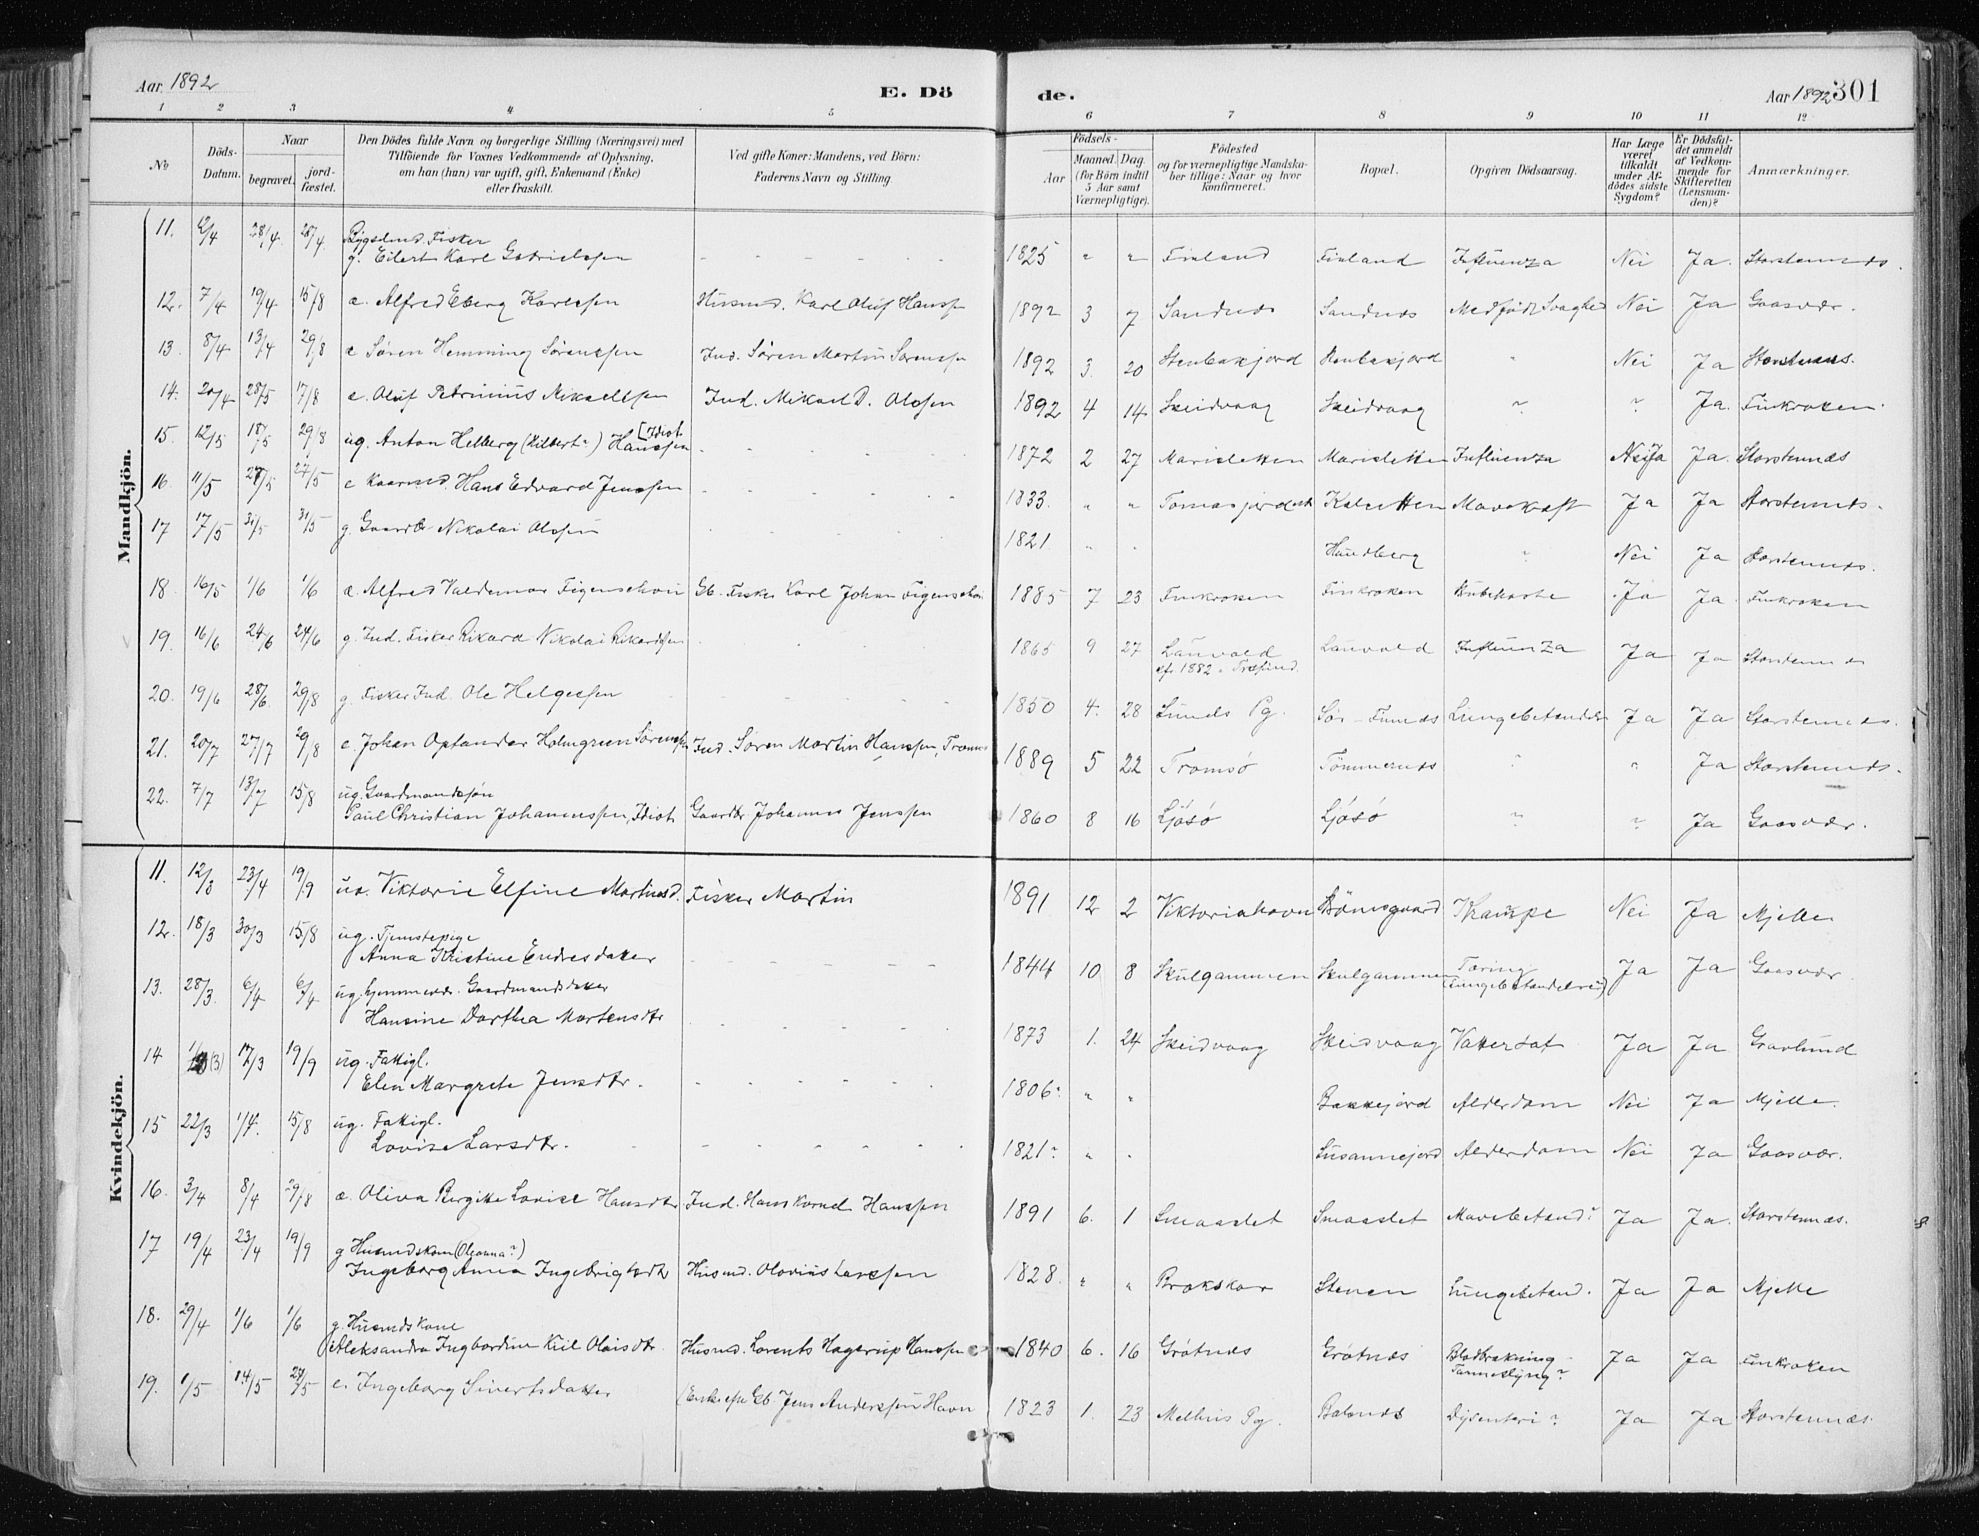 Aar 1892
E. Dö
de.
Aar 1892 301
1 2 3 4 5 6 7 8 9 10 11 12
No
Döds-Datum.
Naar
begravet. jord-fæstet.
Den Dödes fulde Navn og borgerlige Stilling (Næringsvei) med
Tilföiende for Voxnes Vedkommende af Oplysning,
om han (hun) var ugift, gift, Enkemand (Enke)
eller fraskilt.
Ved gifte Koner: Mandens, ved Börn:
Faderens Navn og Stilling.
Födsels-
Aar
Maaned. Dag.
(for Börn indtil
5 Aar samt
Værnepligtige).
Födested
og for værnepligtige Mandska-
ber tillige: Naar og hvor
konfirmeret.
Bopæl.
Opgiven Dödsaarsag.
Har Læge
været
tilkaldt
under Af-
dödes sidste
Sygdom?
Er Dödsfal-
det anmeldt
af Vedkom-
mende for
Skifteretten
(Lensman-
den)?
Anmærkninger.
Mandkjön.
11. 28/4 28/4 Fisker
g. Eilert Karl Gabrielssen 1825 " " Finland Finland Influenza Nei Ja Storstennes.
12. 7/4 19/4 15/8 e. Alfred Eberg Karlssen Husmd. Karl Oluf Hanssen 1892 3 7 Sandnes Sandnes Medfødt Svaghed Nei Ja Gaasvær.
13. 8/4 13/4 29/8 e Søren Hemming Sørenssen Ind. Søren Martin Sørenssen 1892 3. 20 " Nei Ja Storstennes.
14. 20/4 28/5 17/8 e. Oluf Petrinius Mikaelssen Ind. Mikael D. Olssen 1892 4 14 Skeidvaag Skeidvaag " " Ja. Finkroken.
15. 12/5 18/5 29/8 ug. Anton Helberg (Hilbert?) Hanssen [Idiot 1872 2 27 Marisletten Marisletten Influenza Ja. Storstennæs
16. 11/5 27/5 27/5 e Hans Edvard Jenssen 1833. " " Tomasjord Kalvetten Mavekræft Ja Ja Storstennes.
17 17/5 31/5 31/5 g. Gaardbr. Nikolai Olssen 1821. " " Haudberg " Nei Ja Storstennes.
18 16/5 1/6 1/6 e. Alfred Valdemar Figenschou Gb. Fisker Karl Johan Figenschou 1885 7 23 Finkroken Finkroken Ja Ja Finkroken
19. 16/6 24/6 24/6 g. Ind. Fisker Rikard Nikolai Rikardssen 1865 9 27 Lauvold Lauvold Influenza Ja Ja Storstennes
cfr. 1882 i Træsund.
20. 19/6 28/6 29/8 g. Fisker Ind. Ole Helgessen 1850 4. 28 Lunds Pg. Lungebetændelse Ja Ja Storstennes.
21. 20/7 27/7 29/8 e. Johan Holmgreen Sørenssen Ind. Søren Martin Hanssen, Tromsø 1889 5 22 Tromsø Tømmernes " " Ja Storstennes.
22. 7/7 13/7 15/8 ug. Gaardmandssøn
Paul Christian Johannessen, Idiot Gaardbr. Johannes Jenssen 1860 8 16 Ljøsø Ljøsø " " Ja Gaasvær.
Kvindekjön.
11. 12/3 23/4 19/9 Viktorie Elfine Martinsd. Fisker Martin 1891 12 2 Viktoriahavn Bømsgaard Krampe Nei Ja Mjelle
12. 18/3 30/3 15/8 ug. Tjenestepige
Anna Kristine Endresdatter 1844 10. 8 Skulgammen Skulgammen Tæring Ja Ja Gaasvær
(Lungebetændelse)
13. 28/3. 6/4 6/4 ug. hjemmevær. Gaardmandsdatter
Hansine Dorthea Martensdtr 1873 1. 24 Skeidvaag Skeidvaag Vattersot Ja Ja Gravlund
14 17/3 19/9 ug. Fattigl.
Elen Margrete Jensdtr. 1806? " " Bakkejord Alderdom Nei Ja Mjelle.
15 22/3 1/4. 15/8 ug. Fattigl.
Lovise Larsdtr. 1821? " " Susannejord Alderdom Nei Ja Gaasvær.
16. 3/4 8/4 29/8 e. Oliva Bergitte Lovise Hansdtr Ind. Hans Kornel Hanssen 1891 6. 1 Smaaslet Smaaslet Mavebetænd? Ja Ja. Storstennæs.
17 19/4 23/4 19/9 g Husmdskone (Oleanna?)
Ingeborg Anna Ingebrigtsdtr Husmd. Olovius Larssen 1828. " " Brokskar Stenen Lungebetænd. Ja Ja Mjelle
18. 29/4 1/6 1/6 g. Husmdskone
Aleksandra Ingbordine Kiil Olaisdtr. Husmd. Lorents Hagerup Hanssen 1840 6. 16 Grøtnes Grøtnes Blodbrækning Ja Ja Finkroken
19. 1/5 14/5 27/5 e. Ingeborg Sivertsdatter (Enke efter Gb. Jens Anderssen Havn 1823 1. 23 Melhus Pg. Balsnes Dysenteri? Ja Ja Storstennæs.